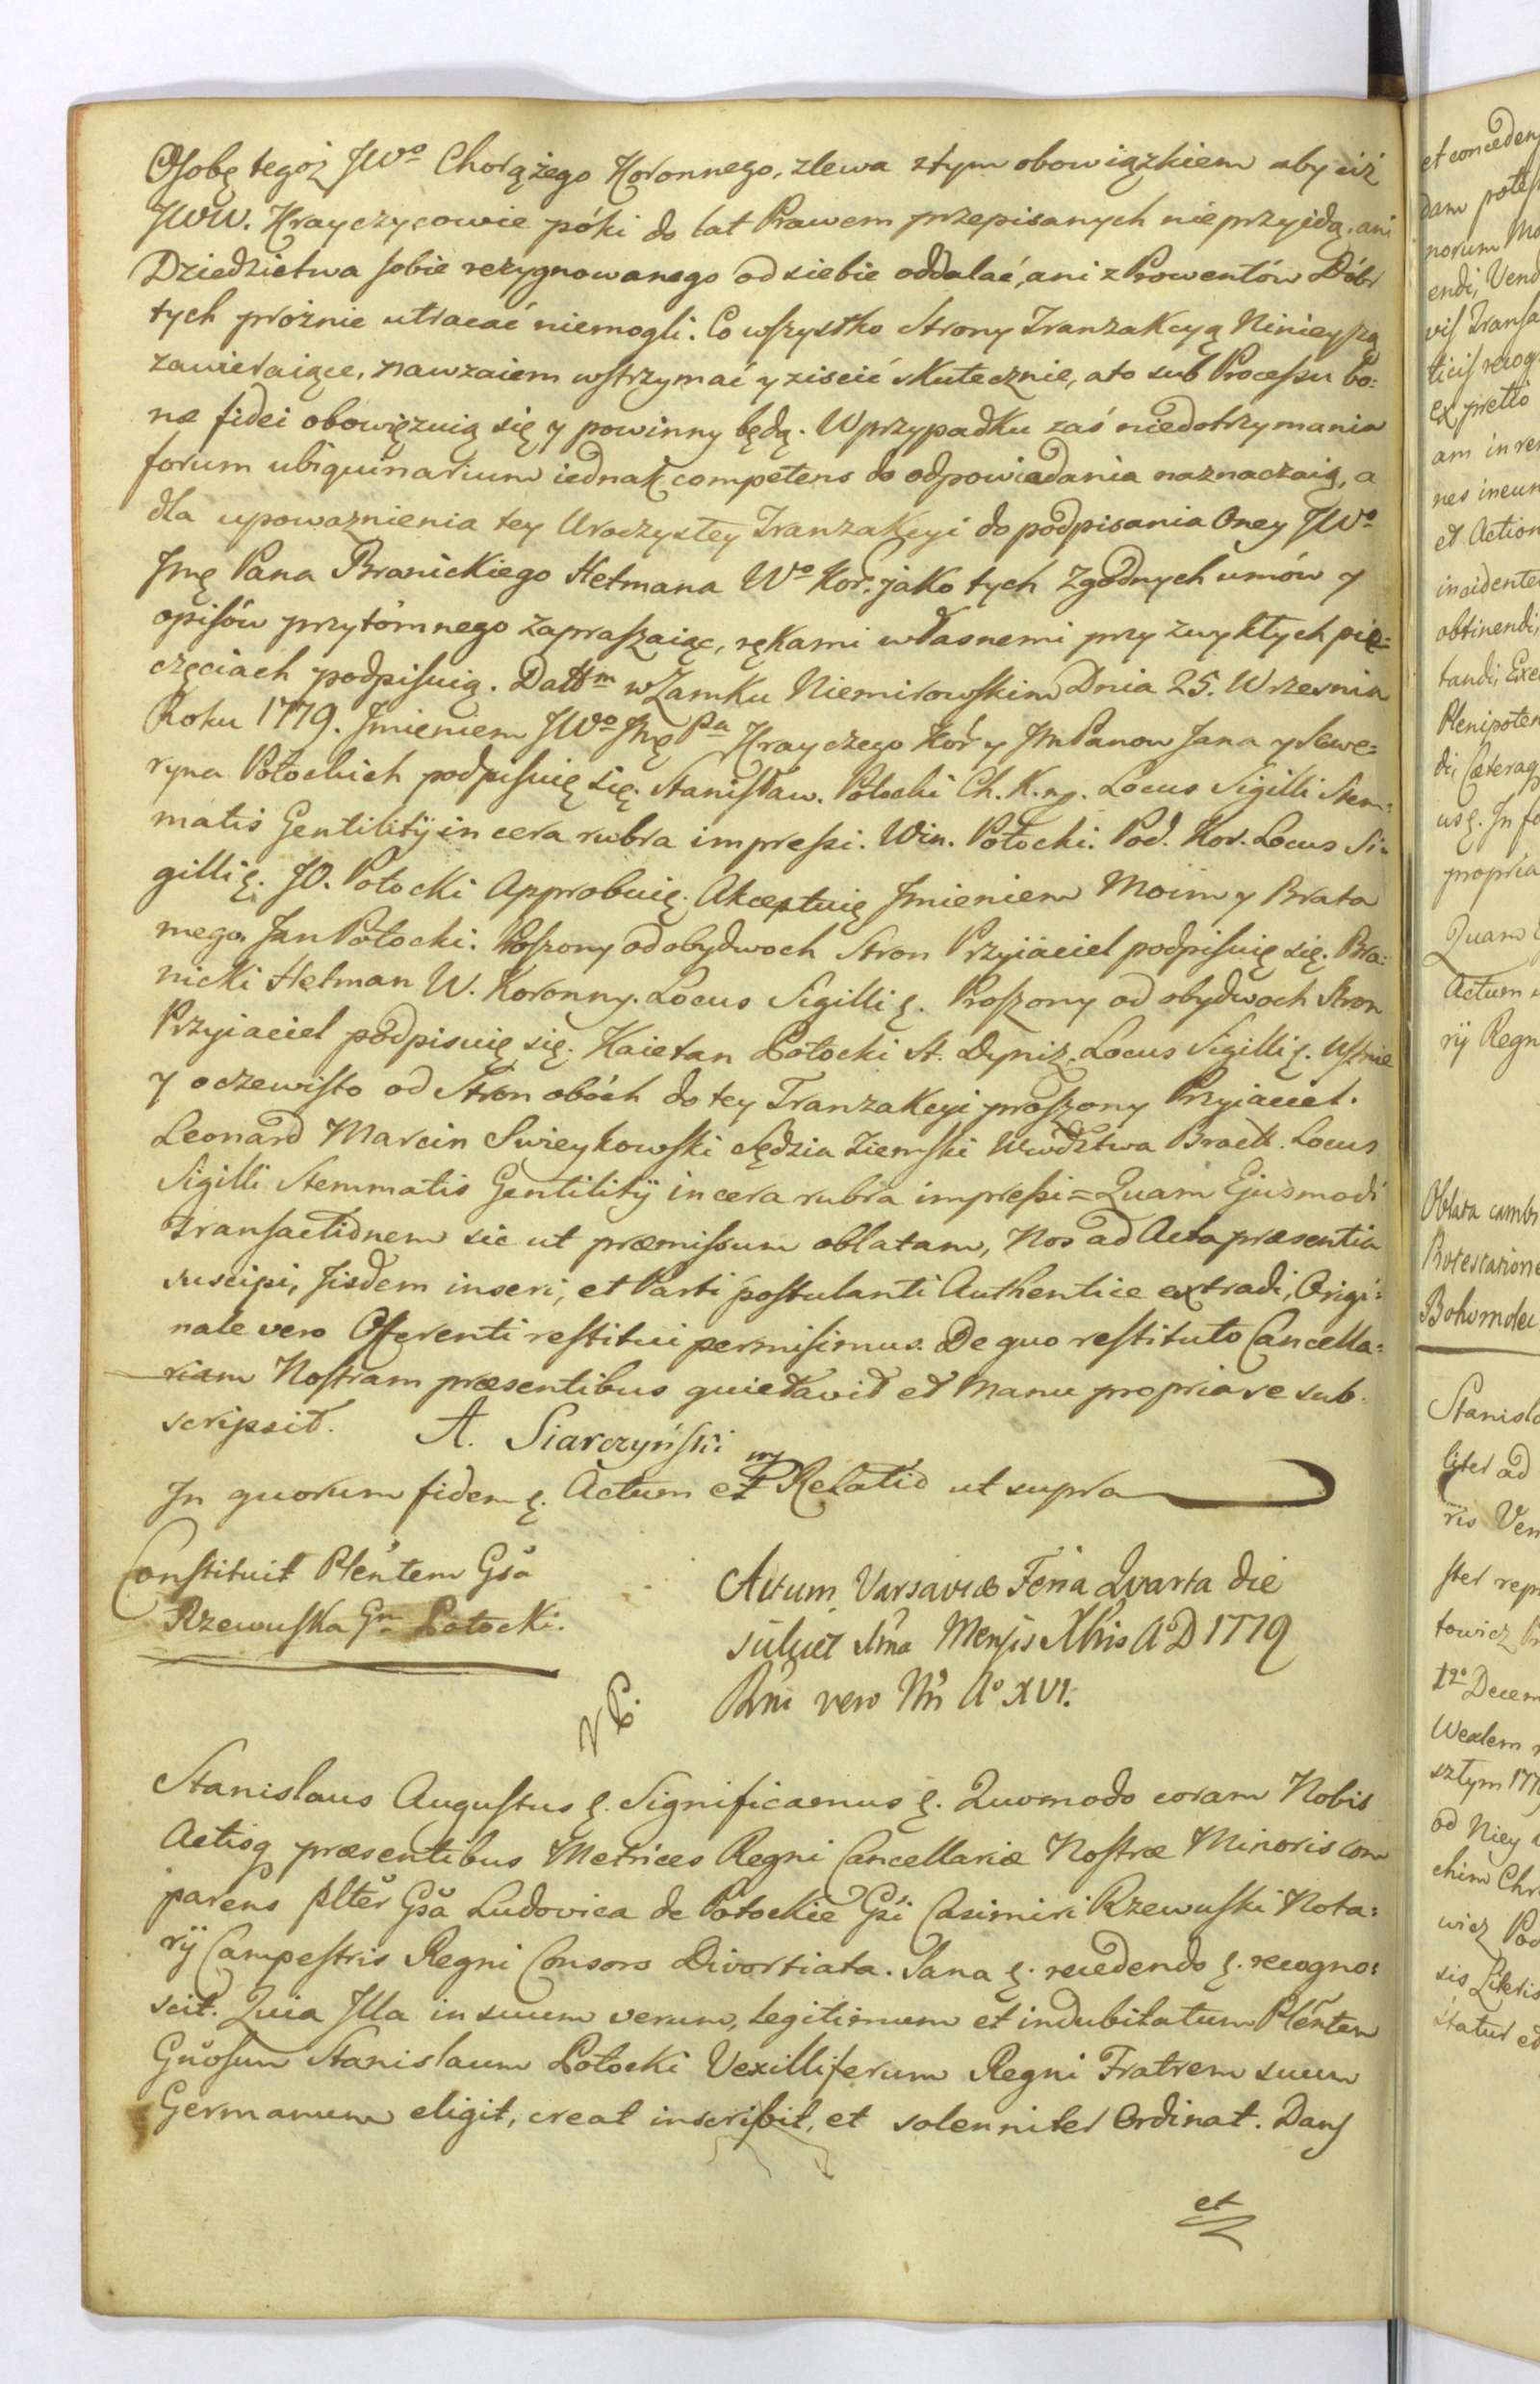 Osobę tegoż JWo Chorążego Koronnego, zlewa z tym obowiązkiem aby ciż
JWW. Krayczycowie póki do lat Prawem przepisanych nie przyidą, ani
Dziedzictwa sobie rezygnowanego od siebie oddalać, ani z Prowentów Dóbr
tych prożnie utracać niemogli. Co wszystko Strony Tranzakcyą Ninieyszą
zawieraiące, nawzaiem wstrzymać y ziscić skutecznie, a to sub Processu bo:
næ fidei obowięzuią się y powinny będą. W przypadku zaś niedotrzymania
forum ubiquinarium iednak competens do odpowiadania naznaczaią, a
dla upoważnienia tey Uroczystey Tranzakcyi do podpisania Oney JWo
Jmę Pana Branickiego Hetmana Wo Kor. jako tych Zgodnych umów y
opisów przytomnego zapraszaiąc, rękami własnemi przy zwykłych pie=
częciach podpisuią. Dattm w Zamku Niemirowskim Dnia 25. Wrzesnia
Roku 1779. Jmieniem JWo Jmę Pa Krayczego Kor y Jm Panow Jana y Sewe=
ryna Potockich podpisuię się. Stanisław. Potocki Ch. K. mp. Locus Sigilli Stem:
matis Gentilitij in cera rubra impressi. Win. Potocki. Pod. Kor. Locus Si=
gilli ę. JO. Potocki Approbuię. Akceptuię Jmieniem Moim y Brata
mego. Jan Potocki. Proszony od obydwoch Stron Przyiaciel podpisuię się. Bra:
nicki Hetman W. Koronny. Locus Sigilli ę. Proszony od obydwoch Stron
Przyiaciel podpisuię się. Kaietan Potocki St. Dyniz. Locus Sigilli ę. Ustnie
y oczewisto od Stron obóch do tey Tranzakcyi proszony Przyiaciel.
Leonard Marcin Swieykowski Sędzia Ziemski Wwdztwa Bracł. Locus
Sigilli Stemmatis Gentilitij in cera rubra impressi = Quam Ejusmodi
Transactionem sic ut præmissum oblatam, Nos ad Acta præsentia
suscipi, Jisdem inseri, et Parti postulanti Authentice extradi, Origi:
nale vero Offerenti restitui permisimus. De quo restituto Cancella:
riam Nostram præsentibus quietavit et Manu propria se sub.
scripsit. A. Siarczyński mp
In quorum fidem ę. Actum et Relatio ut supra
Constituit Plentem Gsa
Rzewuska Gm Potocki.
Actum Varsaviæ Feria Quarta die
scilicet 1ma Mensis Xbris A D 1779
Rni vero Nri Ao XVI.
Stanislaus Augustus ę. Significamus ę. Quomodo coram Nobis
Actisq præsentibus Metrices Regni Cancellariæ Nostræ Minoris com
parens plter Gsa Ludovica de Potockie Gsi Casimiri Rzewuski Nota:
rij Campestris Regni Consors Divortiata. Sana ę. recedendo ę. recogno:
scit. Quia Illa in suum verum, legitimum et indubitatum Plentem
Gnosum Stanislaum Potocki Vexilliferum Regni Fratrem suum
Germanum eligit, creat inscribit, et solenniter Ordinat. Dans
et
et conceden
dam potes
norum
endi, Vend
vis Transa
ticis recog
ex pretio
am in rem
nes ineun
et Action
incidente
obtinendi,
tandi, Exe
Plenipoten
di, Cæteraq
us ę. In fo
propria
Quam
Actum
rij Regn
Oblata cambi
Protestatione
Bohomolec
Stanisla
liter ad
ris Ven
ster repr
towicz
12o Decem
Wexlem
sztym 177
od Niey
chim Chr
wicz Pod
sis Literis
statur et